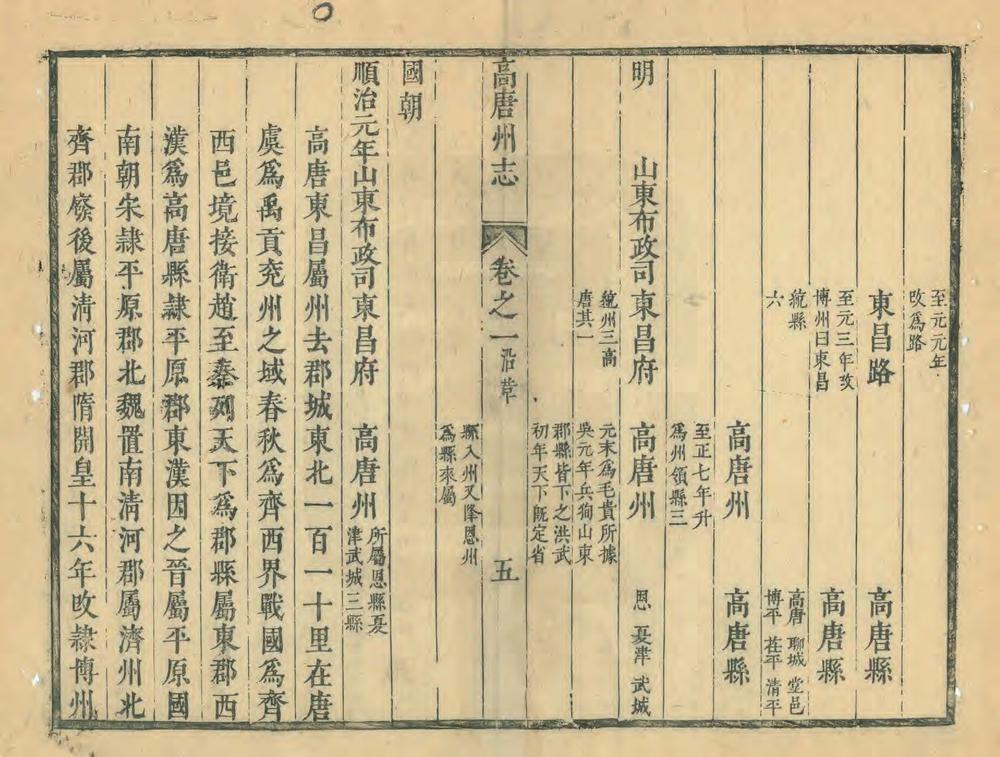 至元元年
改爲路
東昌路 高唐縣
至元三年改
博州曰東昌
高唐縣
統縣
六
高唐 聊城 堂邑
博平 茌平 清平
高唐州 高唐縣
至正七年升
爲州領縣三
明 山東布政司東昌府 高唐州 恩 夏津 武城
統州三高
唐其一
元末爲毛貴所據
吳元年兵徇山東
郡縣皆下之洪武
初年天下既定省
高唐州志 卷之一 沿革 五
縣入州又降恩州
爲縣來屬
國朝
順治元年山東布政司東昌府 高唐州
所屬恩縣夏
津武城三縣
高唐東昌屬州去郡城東北一百一十里在唐
虞爲禹貢兗州之域春秋爲齊西界戰國爲齊
西邑境接衛趙至秦列天下爲郡縣屬東郡西
漢爲高唐縣隷平原郡東漢因之晉屬平原國
南朝宋隷平原郡北魏置南清河郡屬濟州北
齊郡廢後屬清河郡隋開皇十六年改隷博州